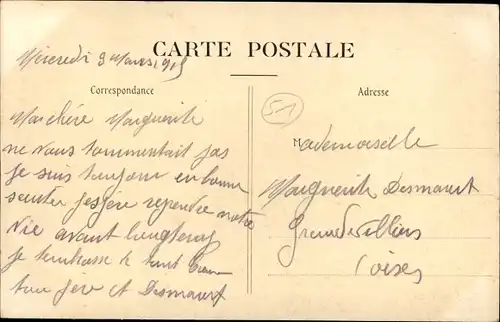 CARTE POSTALE
Mercredi 3 Mars 1915
Correspondance
Adresse
51
Ma chère Marguerite
ne vous tourmentait pas
je suis toujour en bonne
santer j'espère reprendre notre
vie avant longtemp
je t'embrasse le tant
ton père et Desmaret
Mademoiselle
Marguerite Desmaret
Grandvilliers
(Oise)